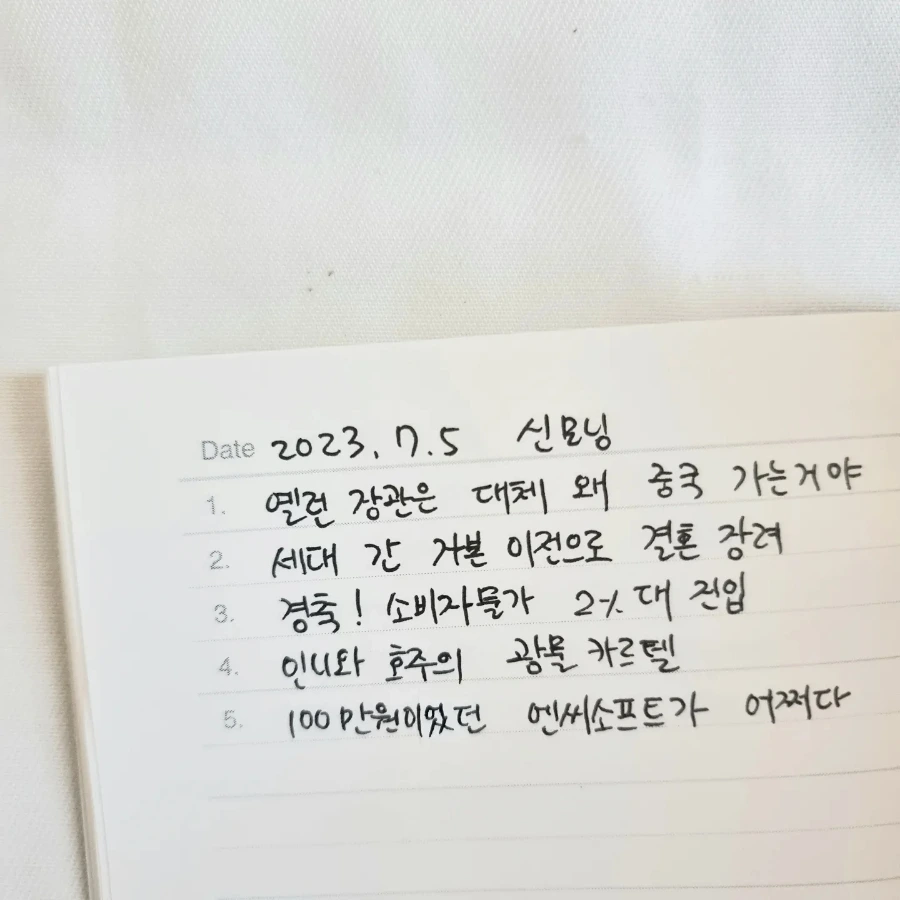 Date 2023.7.5 신모닝
1. 옐런 장관은 대체 왜 중국 가는거야
2. 세대 간 자본 이전으로 결혼 장려
3. 경축! 소비자물가 2%대 진입
4. 인니와 호주의 광물 카르텔
5. 100만원이었던 엔씨소프트가 어쩌다